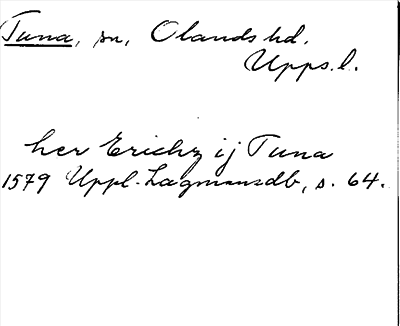 Tuna, sn, Olands hd.
Upps. l.
her Erichz ij Tuna
1579 Uppl. Lagmansdb, s. 64.